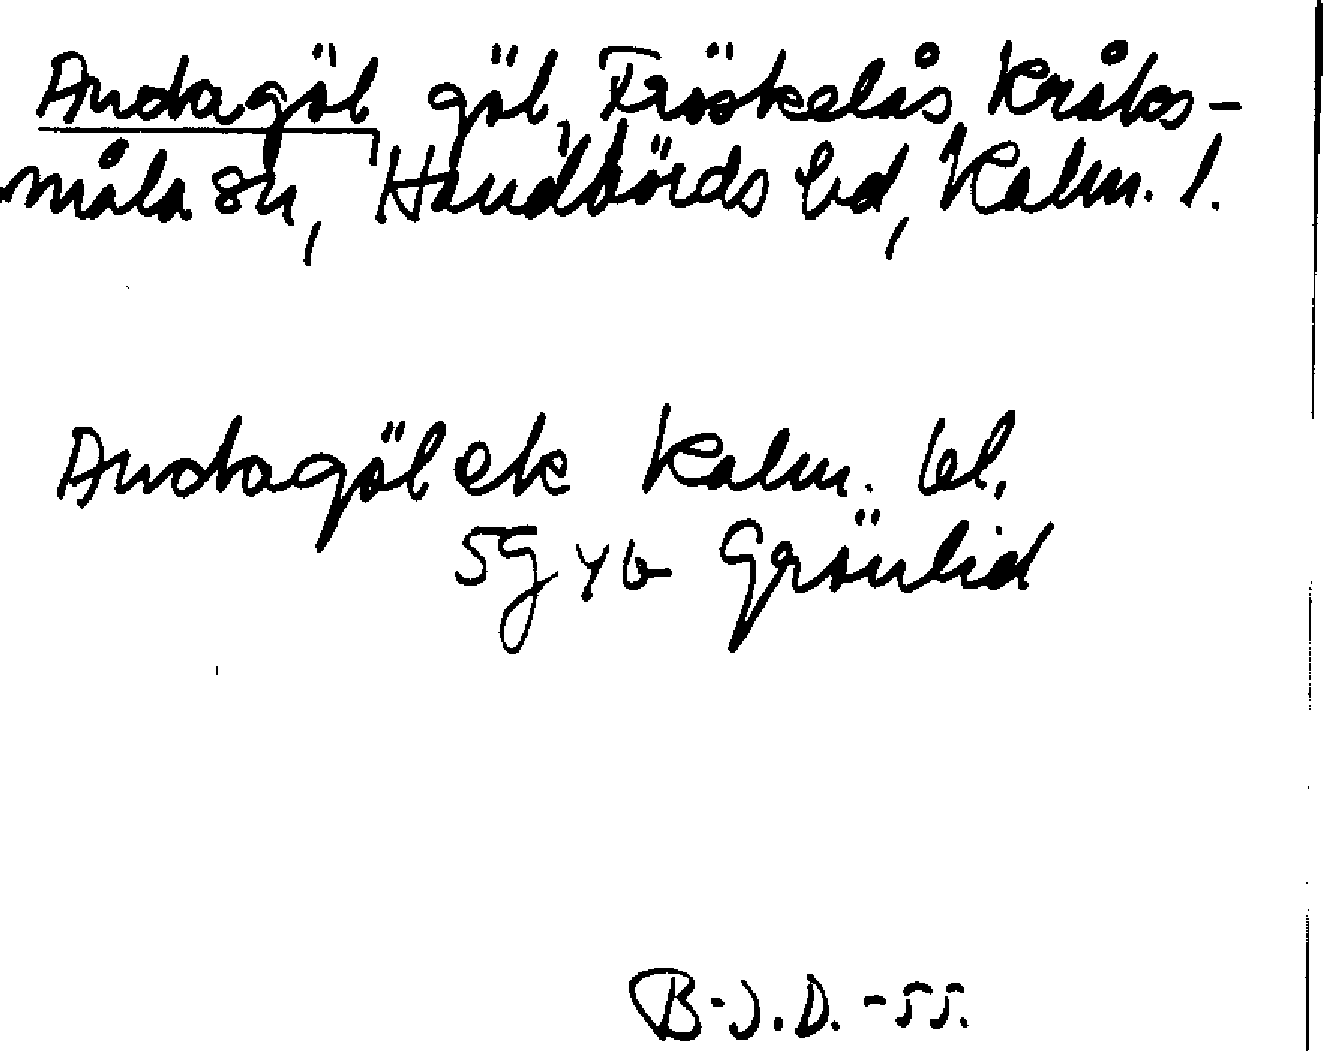 Andagöl, göl, Fröskelås, Kråks-
måla sn, Handbörds hd, Kalm. l.
Andagöl ek Kalm. bl.
5G y b Grönlid
B-J.D.-55.